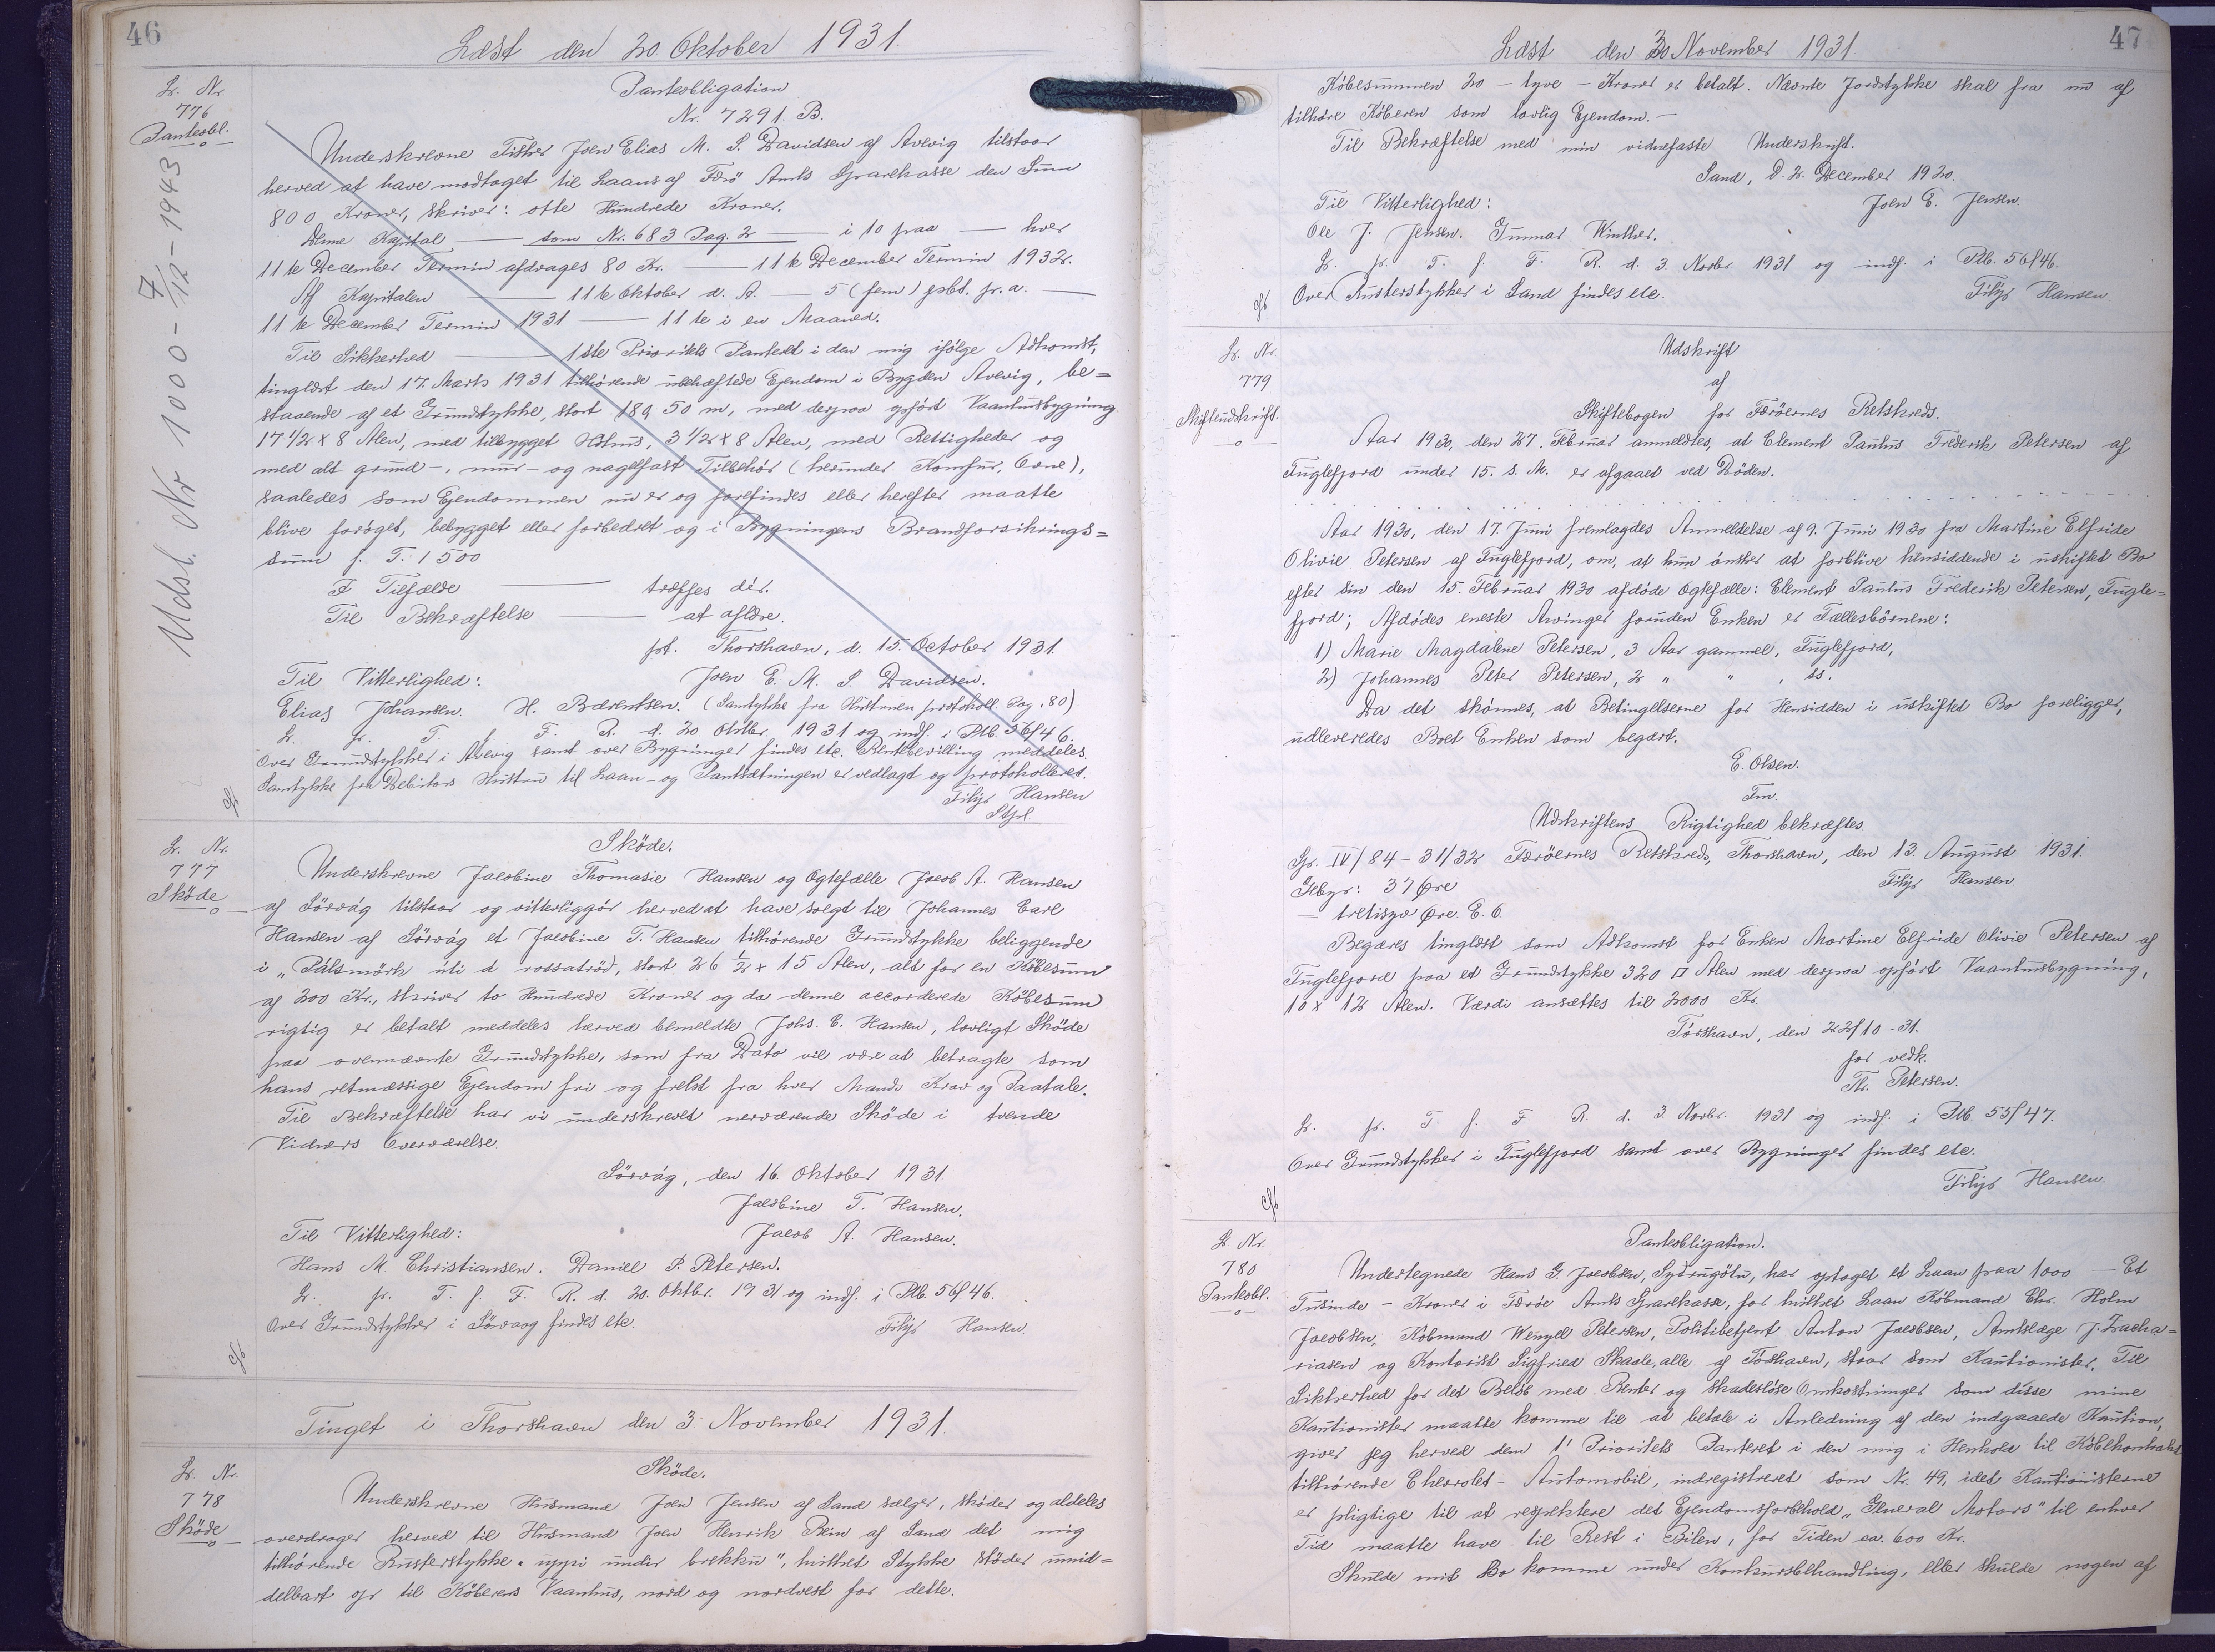 46
Læst den 20 Oktober 1931.
L. Nr.
776
Pantesbl.
Udsl. Nr 1000 - 7/12 - 1943
Panteobligation
Nr. 7291. B.
Underskrevne Fisker Joen Elias M. S. Davidsen af Avevig tilstaar
herved at have modtaget til Laans af Færø Amts Sparekasse den Sum
800 Kroner, skriver: otte Hundrede Kroner.
Denne Kapital — som Nr. 683 Pag. 2 — i 10 paa — hver
11te December Termin afdrages 80 Kr. — 11te December Termin 1932.
Af Kapitalen — 11te Oktober d. A. — 5 (fem) pCt. pr. a. —
11te December Termin 1931 — 11te i en Maaned.
Til Sikkerhed — 1ste Prioritets Panteret i den mig ifølge Adkomst,
tinglæst den 17. Marts 1931 tilhørende ubehæftede Ejendom i Bygden Avevig, be=
staaende af et Grundstykke, stort 189,50 m, med derpaa opført Vaaningsbygning
17 1/2 x 8 Alen, med tilbygget Hølus, 3 1/2 x 8 Alen, med Rettigheder og
med alt grund-, mur- og nagelfast Tilbehør (herunder Komfur, Ovne),
saaledes som Ejendommen nu er og forefindes eller herefter maatte
blive forøget, bebygget eller forbedret og i Bygningens Brandforsikrings=
sum f. T. 1500
I Tilfælde — træffes dér.
Til Bekræftelse — at aflære.
pt. Thorshavn, d. 15. October 1931.
Til Vitterlighed: Joen E. M. S. Davidsen.
Elias Johansen. H. Bærentsen. (Samtykke fra Hustruen protokoll. Pag. 80)
L. p. T. f. F. R. d. 20 Oktbr. 1931 og indf. i Ptb. 56/46.
Over Grundstykker i Avevig samt over Bygninger findes etc. Rentebevilling meddeles.
Samtykke fra Debitors Hustru til Laan- og Pantsætningen er vedlagt og protokolleret.
Filip Hansen
L. Nr.
777
Skøde
Skøde.
Underskrevne Jacobine Thomasie Hansen og Ægtefælle Jacob A. Hansen
af Sörvág tilstaar og vitterliggør herved at have solgt til Johannes Carl
Hansen af Sörvág et Jacobine T. Hansen tilhørende Grundstykke beliggende
i „Pálsmørk úti á rossatrøð, stort 26 1/2 x 15 Alen, alt for en Købesum
af 200 Kr., skriver to Hundrede Kroner og da denne accorderede Købesum
rigtig er betalt meddeles herved bemeldte Johs. C. Hansen, lovligt Skøde
paa ovennævnte Grundstykke, som fra Dato vil være at betragte som
hans retmæssige Ejendom fri og frelst fra hver Mands Krav og Paatale.
Til Bekræftelse har vi underskrevet nærværende Skøde i tvende
Vidners Overværelse.
Sörvág, den 16. Oktober 1931.
Jacobine T. Hansen.
Til Vitterlighed: Jacob A. Hansen.
Hans M. Christiansen. Daniel P. Petersen.
L. p. T. f. F. R. d. 20. Oktbr. 1931 og indf. i Ptb. 56/46.
Over Grundstykker i Sörvaag findes etc.
Filip Hansen
Tinget i Thorshavn den 3. November 1931.
L. Nr.
778
Skøde
Skøde.
Underskrevne Husmand Joen Jensen af Sand sælger, skøder og aldeles
overdrager herved til Husmand Joen Henrik Rein af Sand det mig
tilhørende Trusterstykke „uppi undir brekku", hvilket Stykke støder umid=
delbart op til Køberens Vaanhus, nord og nordvest for dette.
47
Læst den 3 November 1931
Købesummen 20 - tyve - Kroner er betalt. Nævnte Jordstykke skal fra nu af
tilhøre Køberen som lovlig Ejendom.-
Til Bekræftelse med min vidnefaste Underskrift.
Sand, D. 2. December 1920.
Til Vitterlighed: Joen E. Jensen.
Ole J. Jensen. Gunnar Winther.
L. p. T. f. F. R. d. 3. Novbr. 1931 og indf. i Ptb. 56/46.
Over Trusterstykker i Sand findes etc.
Filip Hansen
L. Nr.
779
Skifteudskrift.
Udskrift
af
Skiftebogen for Færøernes Retskreds.
Aar 1930, den 27. Februar anmeldtes, at Element Paulus Frederik Petersen af
Fuglefjord under 15. s. M. er afgaaet ved Døden.
Aar 1930, den 17. Juni fremlagdes Anmeldelse af 9. Juni 1930 fra Martine Elfride
Olivie Petersen af Fuglefjord, om, at hun ønsker at forblive hensiddende i uskiftet Bo
efter sin den 15. Februar 1930 afdøde Ægtefælle: Element Paulus Frederik Petersen, Fugle=
fjord; Afdødes eneste Arvinger foruden Enken er Fællesbørnene:
1) Marie Magdalene Petersen, 3 Aar gammel, Fuglefjord,
2) Johannes Peter Petersen, 2 " " , ds.
Da det skønnes, at Betingelserne for Hensidden i uskiftet Bo foreligger,
udleveredes Boet Enken som begært.
E. Olsen.
Fm.
Udskriftens Rigtighed bekræftes.
Gr. IV/84 - 31/32 Færøernes Retskreds, Thorshavn, den 13. August 1931.
Gebyr: 37 Øre
Filip Hansen
= tretisyv Øre. E. O.
Begæres tinglæst som Adkomst for Enken Martine Elfride Olivie Petersen af
Fuglefjord paa et Grundstykke 320 □ Alen med derpaa opført Vaaningsbygning,
10 x 12 Alen. Værdi ansættes til 2000 Kr.
Tórshavn, den 22/10-31.
for vedk.
Th. Petersen.
L. p. T. f. F. R. d. 3. Novbr. 1931 og indf. i Ptb. 55/47.
Over Grundstykker i Fuglefjord samt over Bygninger findes etc.
Filip Hansen.
L. Nr.
780
Pantesbl.
Panteobligation.
Undertegnede Hans G. Jacobsen, Syðrugøtu, har optaget et Laan paa 1000 — Et
Tusinde - Kroner i Færøe Amts Sparekasse, for hvilket Laan Købmand Chr. Holm
Jacobsen, Købmand Wenzel Petersen, Politibetjent Anton Jacobsen, Amtslæge J. Zacha=
riasen og Kontorist Sigfried Skaale, alle af Tórshavn, staar som Kautionister. Til
Sikkerhed for det Beløb med Renter og skadesløse Omkostninger som disse mine
Kautionister maatte komme til at betale i Anledning af den indgaaede Kaution,
giver jeg herved dem 1' Prioritets Panteret i den mig i Henhold til Købekontrakt
tilhørende Chevrolet-Automobil, indregistreret som Nr. 49, idet Kautionisterne
er pligtige til at respektere det Ejendomsforbehold „General Motors" til enhver
Tid maatte have til Rest i Bilen, for Tiden ca. 600 Kr.
Skulde mit Bo komme under Konkursbehandling, eller skulde nogen af